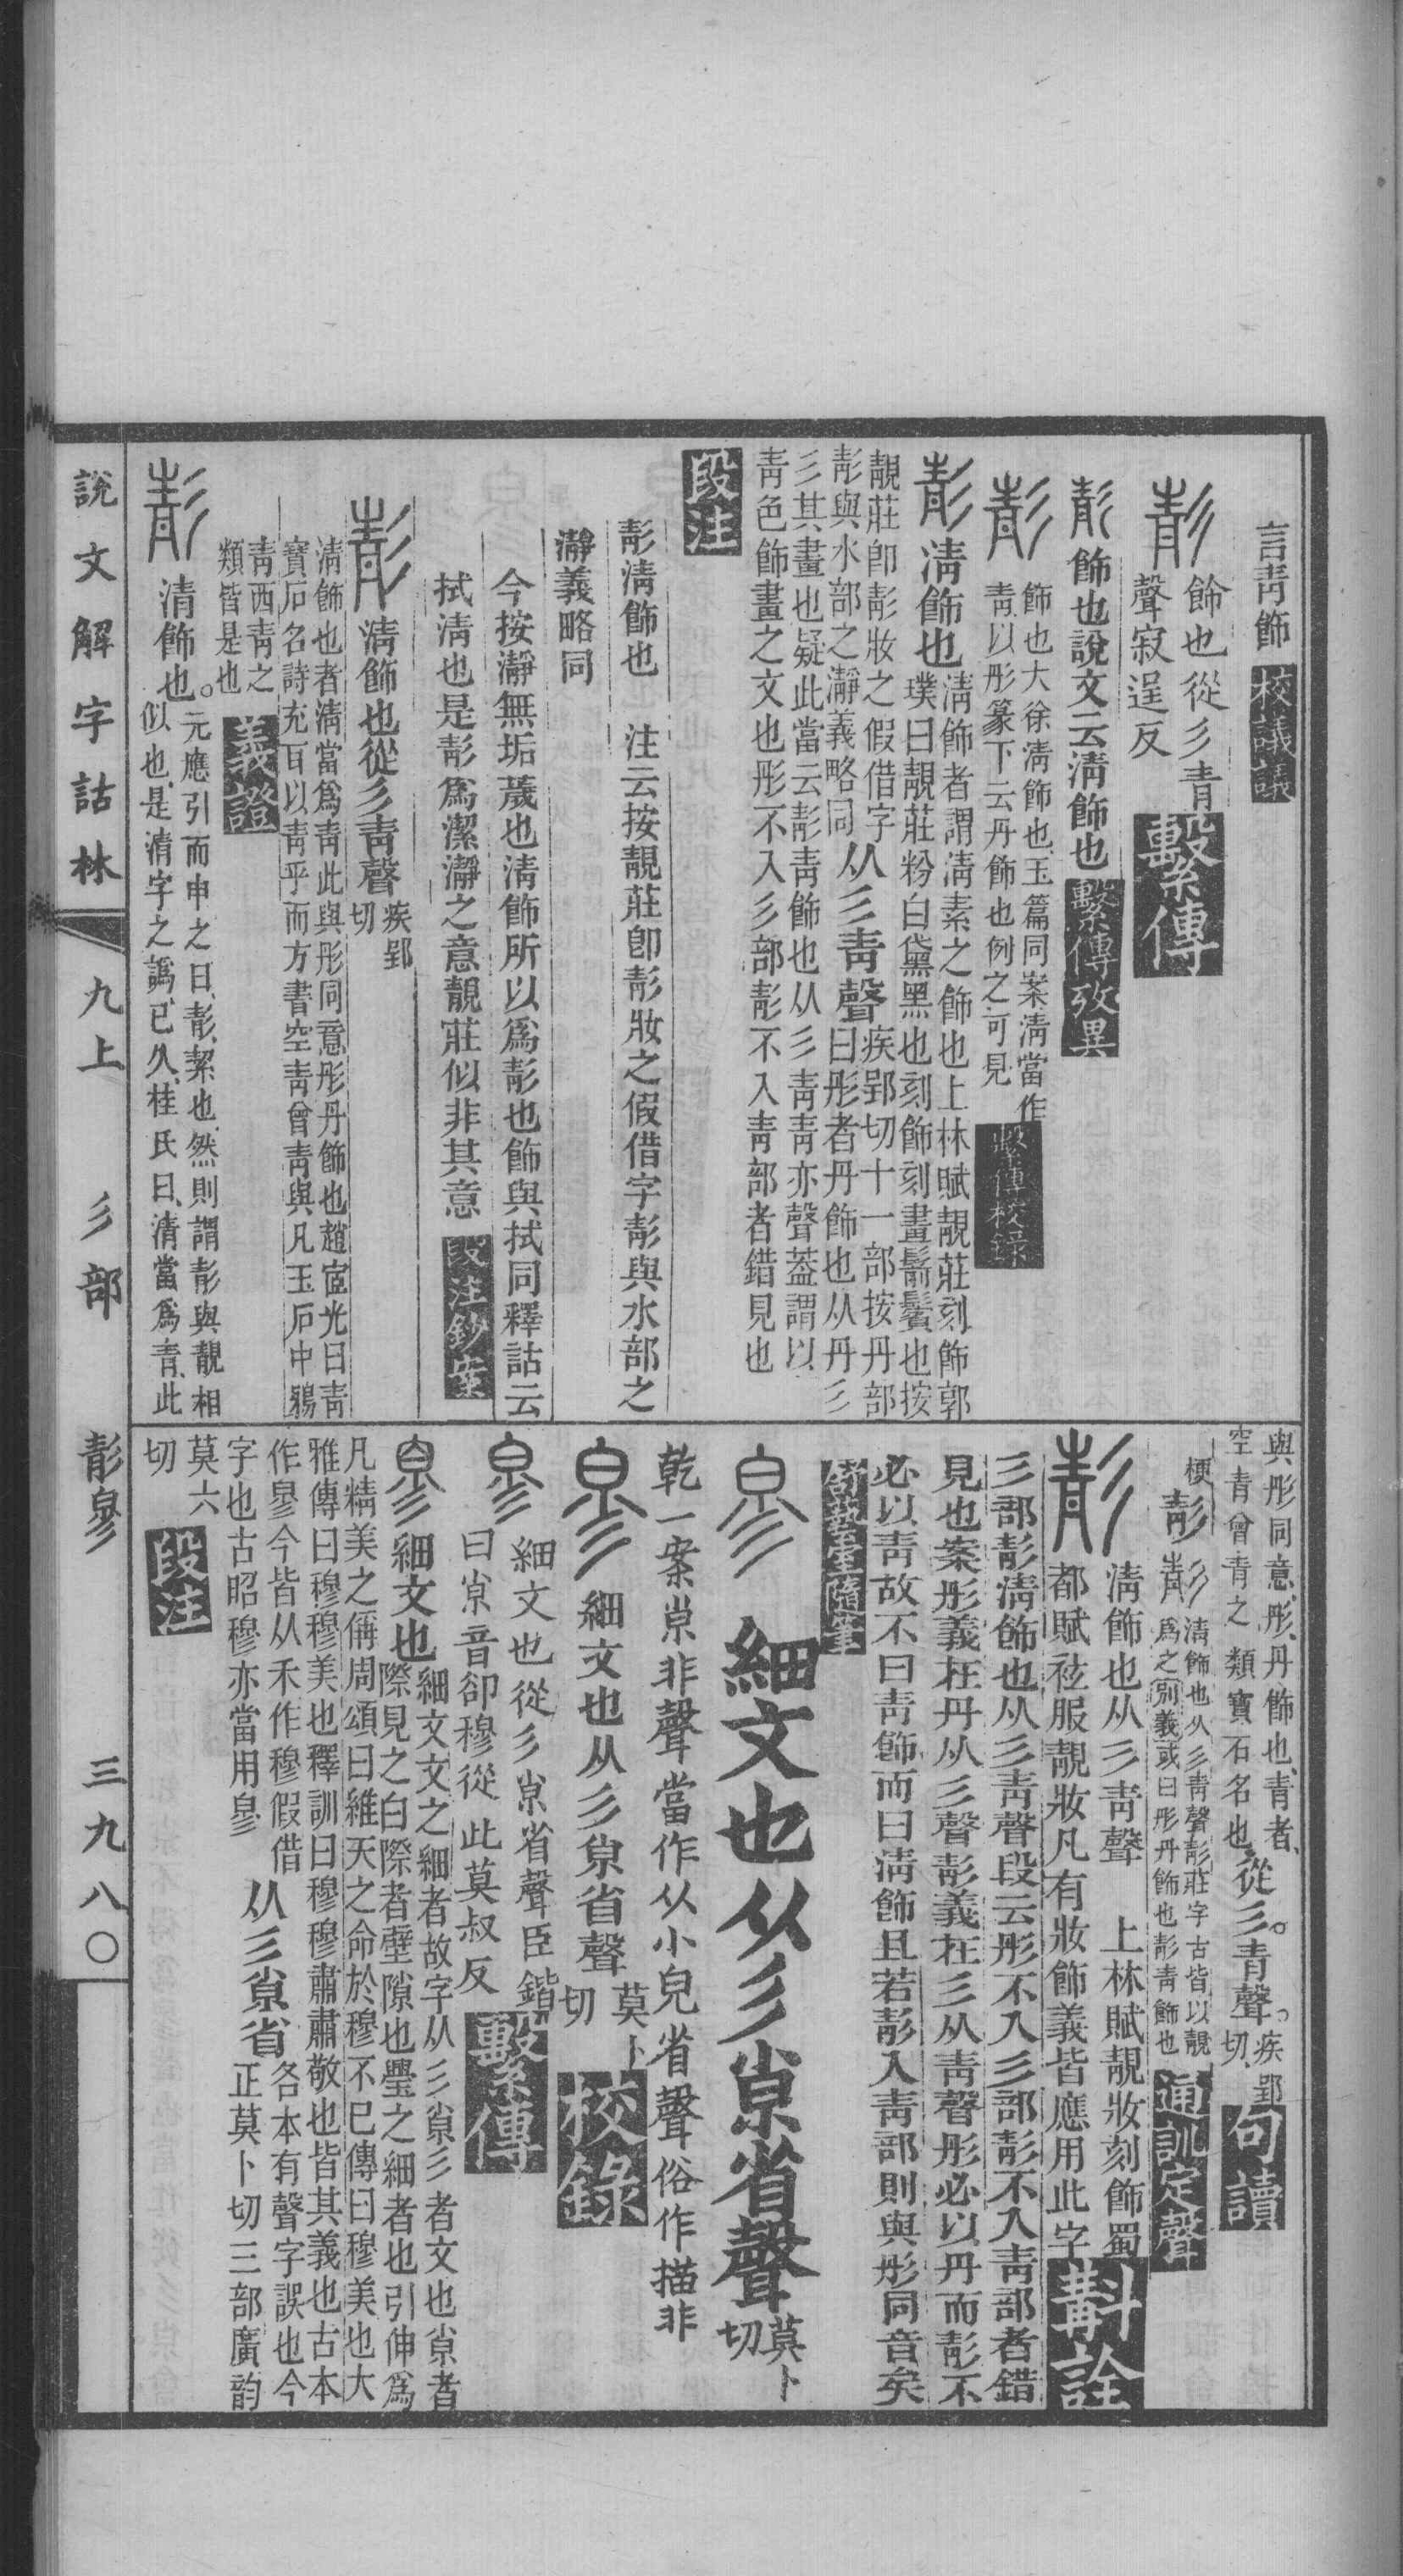 言靑飾 校議議
彰 飾也從彡青
聲寂逞反 繫傳
彭 飾也說文云淸飾也 繫傳攷異
飾也大徐淸飾也玉篇同案淸當作
靑以彤篆下云丹飾也例之可見 繫傳校錄
淸飾也
淸飾者謂淸素之飾也上林賦靚莊刻飾郭
璞曰靚莊粉白黛黑也刻飾刻畫鬋鬢也按
靚莊卽彭妝之假借字
彭與水部之瀞義略同
从彡靑聲
疾郢切十一部按丹部
曰彤者丹飾也从丹彡
彡其畫也疑此當云彭靑飾也从彡靑靑亦聲蓋謂以
靑色飾畫之文也彤不入彡部彭不入靑部者錯見也
段注
彭淸飾也 注云按靚莊卽彭妝之假借字彭與水部之
瀞義略同
今按瀞無垢薉也淸飾所以爲彭也飾與拭同釋詁云
拭淸也是彭爲潔瀞之意靚莊似非其意 段注鈔案
淸飾也從彡靑聲 疾郢切
淸飾也者淸當爲靑此與彤同意彤丹飾也趙宧光曰靑
寶石名詩充耳以靑乎而方書空靑曾靑與凡玉石中鴉
靑西靑之
類皆是也 義證
清飾也。
元應引而申之曰、彭、絜也、然則謂彭與靚相
似也、是清字之譌、已久、桂氏曰、清當爲青、此
說文解字詁林 九上 彡部 三九八〇
與彤同意、彤、丹飾也、青者、
空青曾青之類寶石名也、
從彡。青聲。 疾郢切、 句讀
梗
淸飾也从彡靑聲彭莊字古皆以靚
爲之別義或曰彤丹飾也彭靑飾也 通訓定聲
淸飾也从彡靑聲 上林賦靚妝刻飾蜀
都賦袨服靚妝凡有妝飾義皆應用此字 斠詮
彡部彭淸飾也从彡靑聲段云彤不入彡部彭不入靑部者錯
見也案彤義在丹从彡聲彭義在彡从靑聲彤必以丹而彭不
必以靑故不曰靑飾而曰淸飾且若彭入靑部則與彤同音矣
細文也从彡𡭴省聲 莫卜切
乾一案𡭴非聲當作从小皃省聲俗作描非
細文也从彡𡭴省聲 莫卜切 校錄
細文也從彡𡭴省聲臣鍇
曰𡭴音卻穆從此莫叔反 繫傳
細文也
細文文之細者故字从彡𡭴彡者文也𡭴者
際見之白際者壁隙也璺之細者也引伸爲
凡精美之偁周頌曰維天之命於穆不已傳曰穆美也大
雅傳曰穆穆美也釋訓曰穆穆肅肅敬也皆其義也古本
作㣎今皆从禾作穆假借
字也古昭穆亦當用㣎
从彡𡭴省
各本有聲字誤也今
正莫卜切三部廣韵
莫六
切 段注